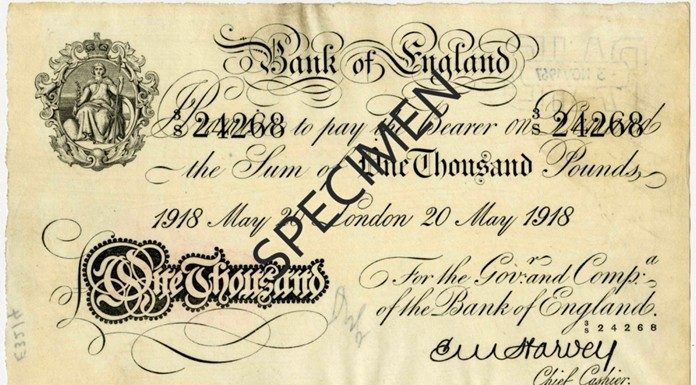 Bank of England
3/S 24268 Promise to pay the Bearer on Demand 3/S 24268
the Sum of One Thousand Pounds
1918 May 20 London 20 May 1918
One Thousand
For the Govr. and Compa.
of the Bank of England.
3/S 24268
E M Harvey
Chief Cashier.
SPECIMEN